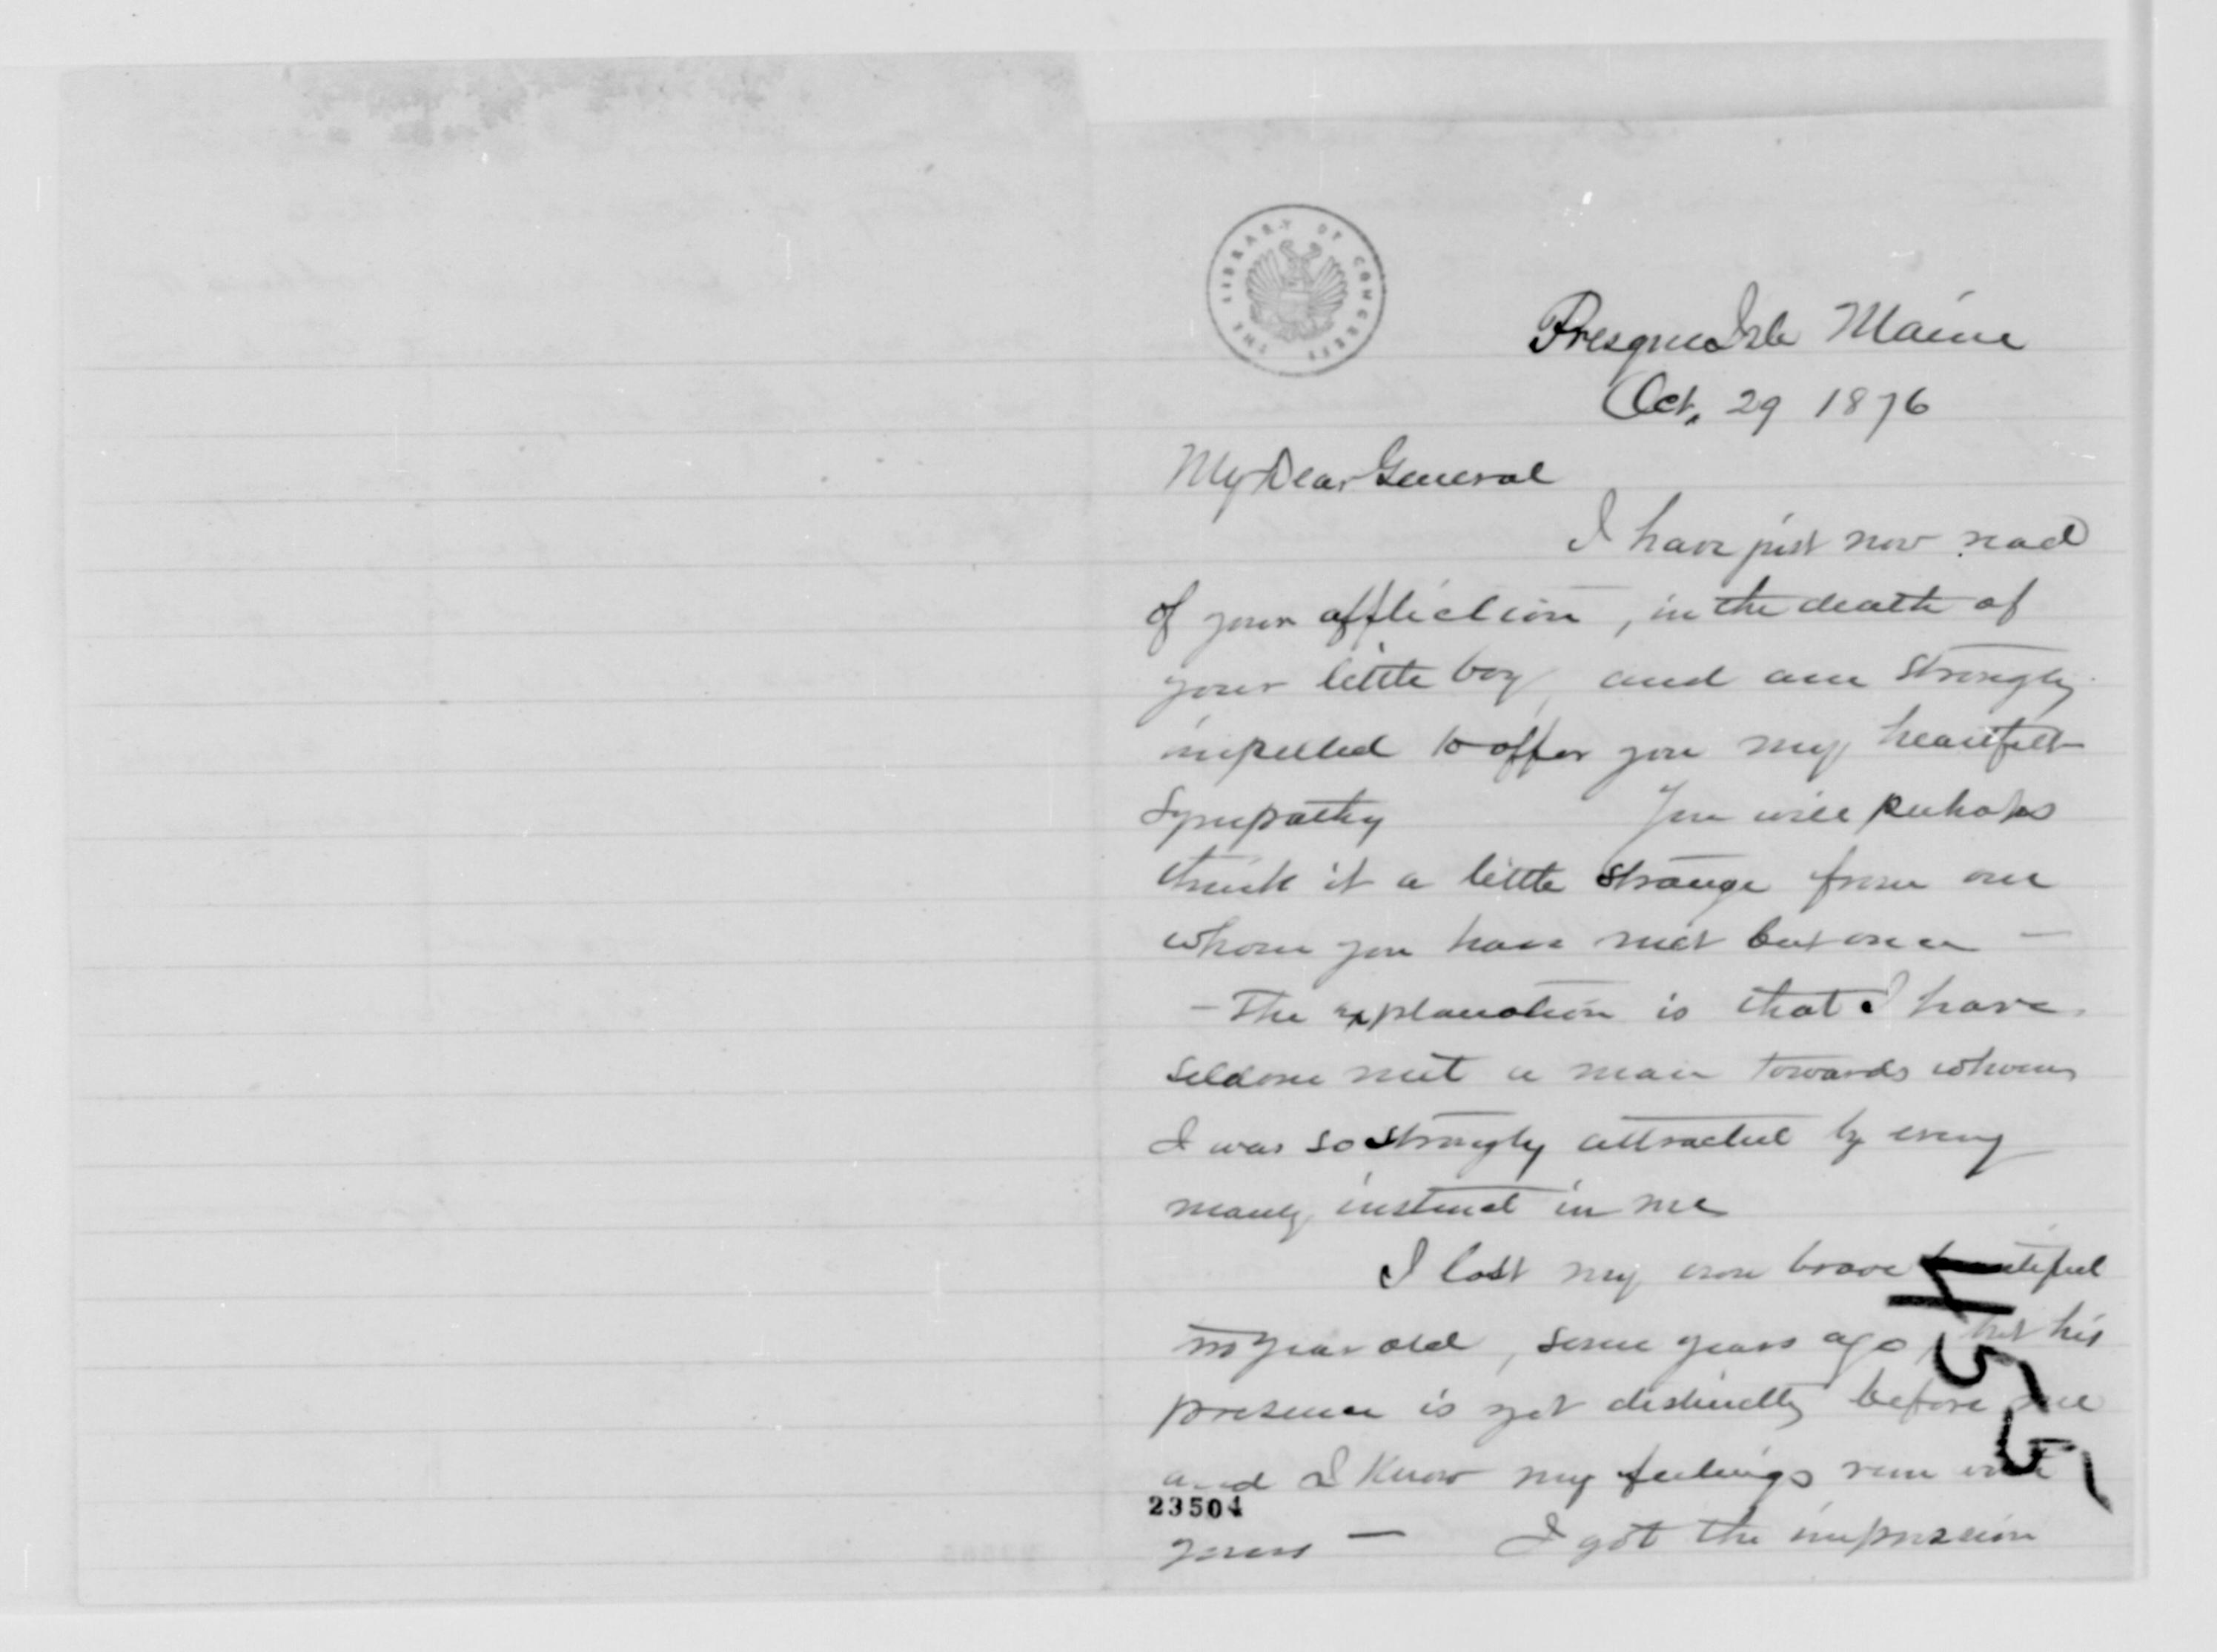 THE LIBRARY OF CONGRESS
Presque Isle Maine
Oct. 29 1876
My Dear General
I have just now read
of your affliction, in the death of
your little boy, and am strongly
impelled to offer you my heartfelt
Sympathy You will perhaps
think it a little strange from one
whom you have met but once —
— The explanation is that I have
seldom met a man towards whom
I was so strongly attracted by every
manly instinct in me
I lost my own brave beautiful
year old, some years ago, but his
presence is yet distinctly before me
and I know my feelings run with
yours — I got the impression
23504
4555